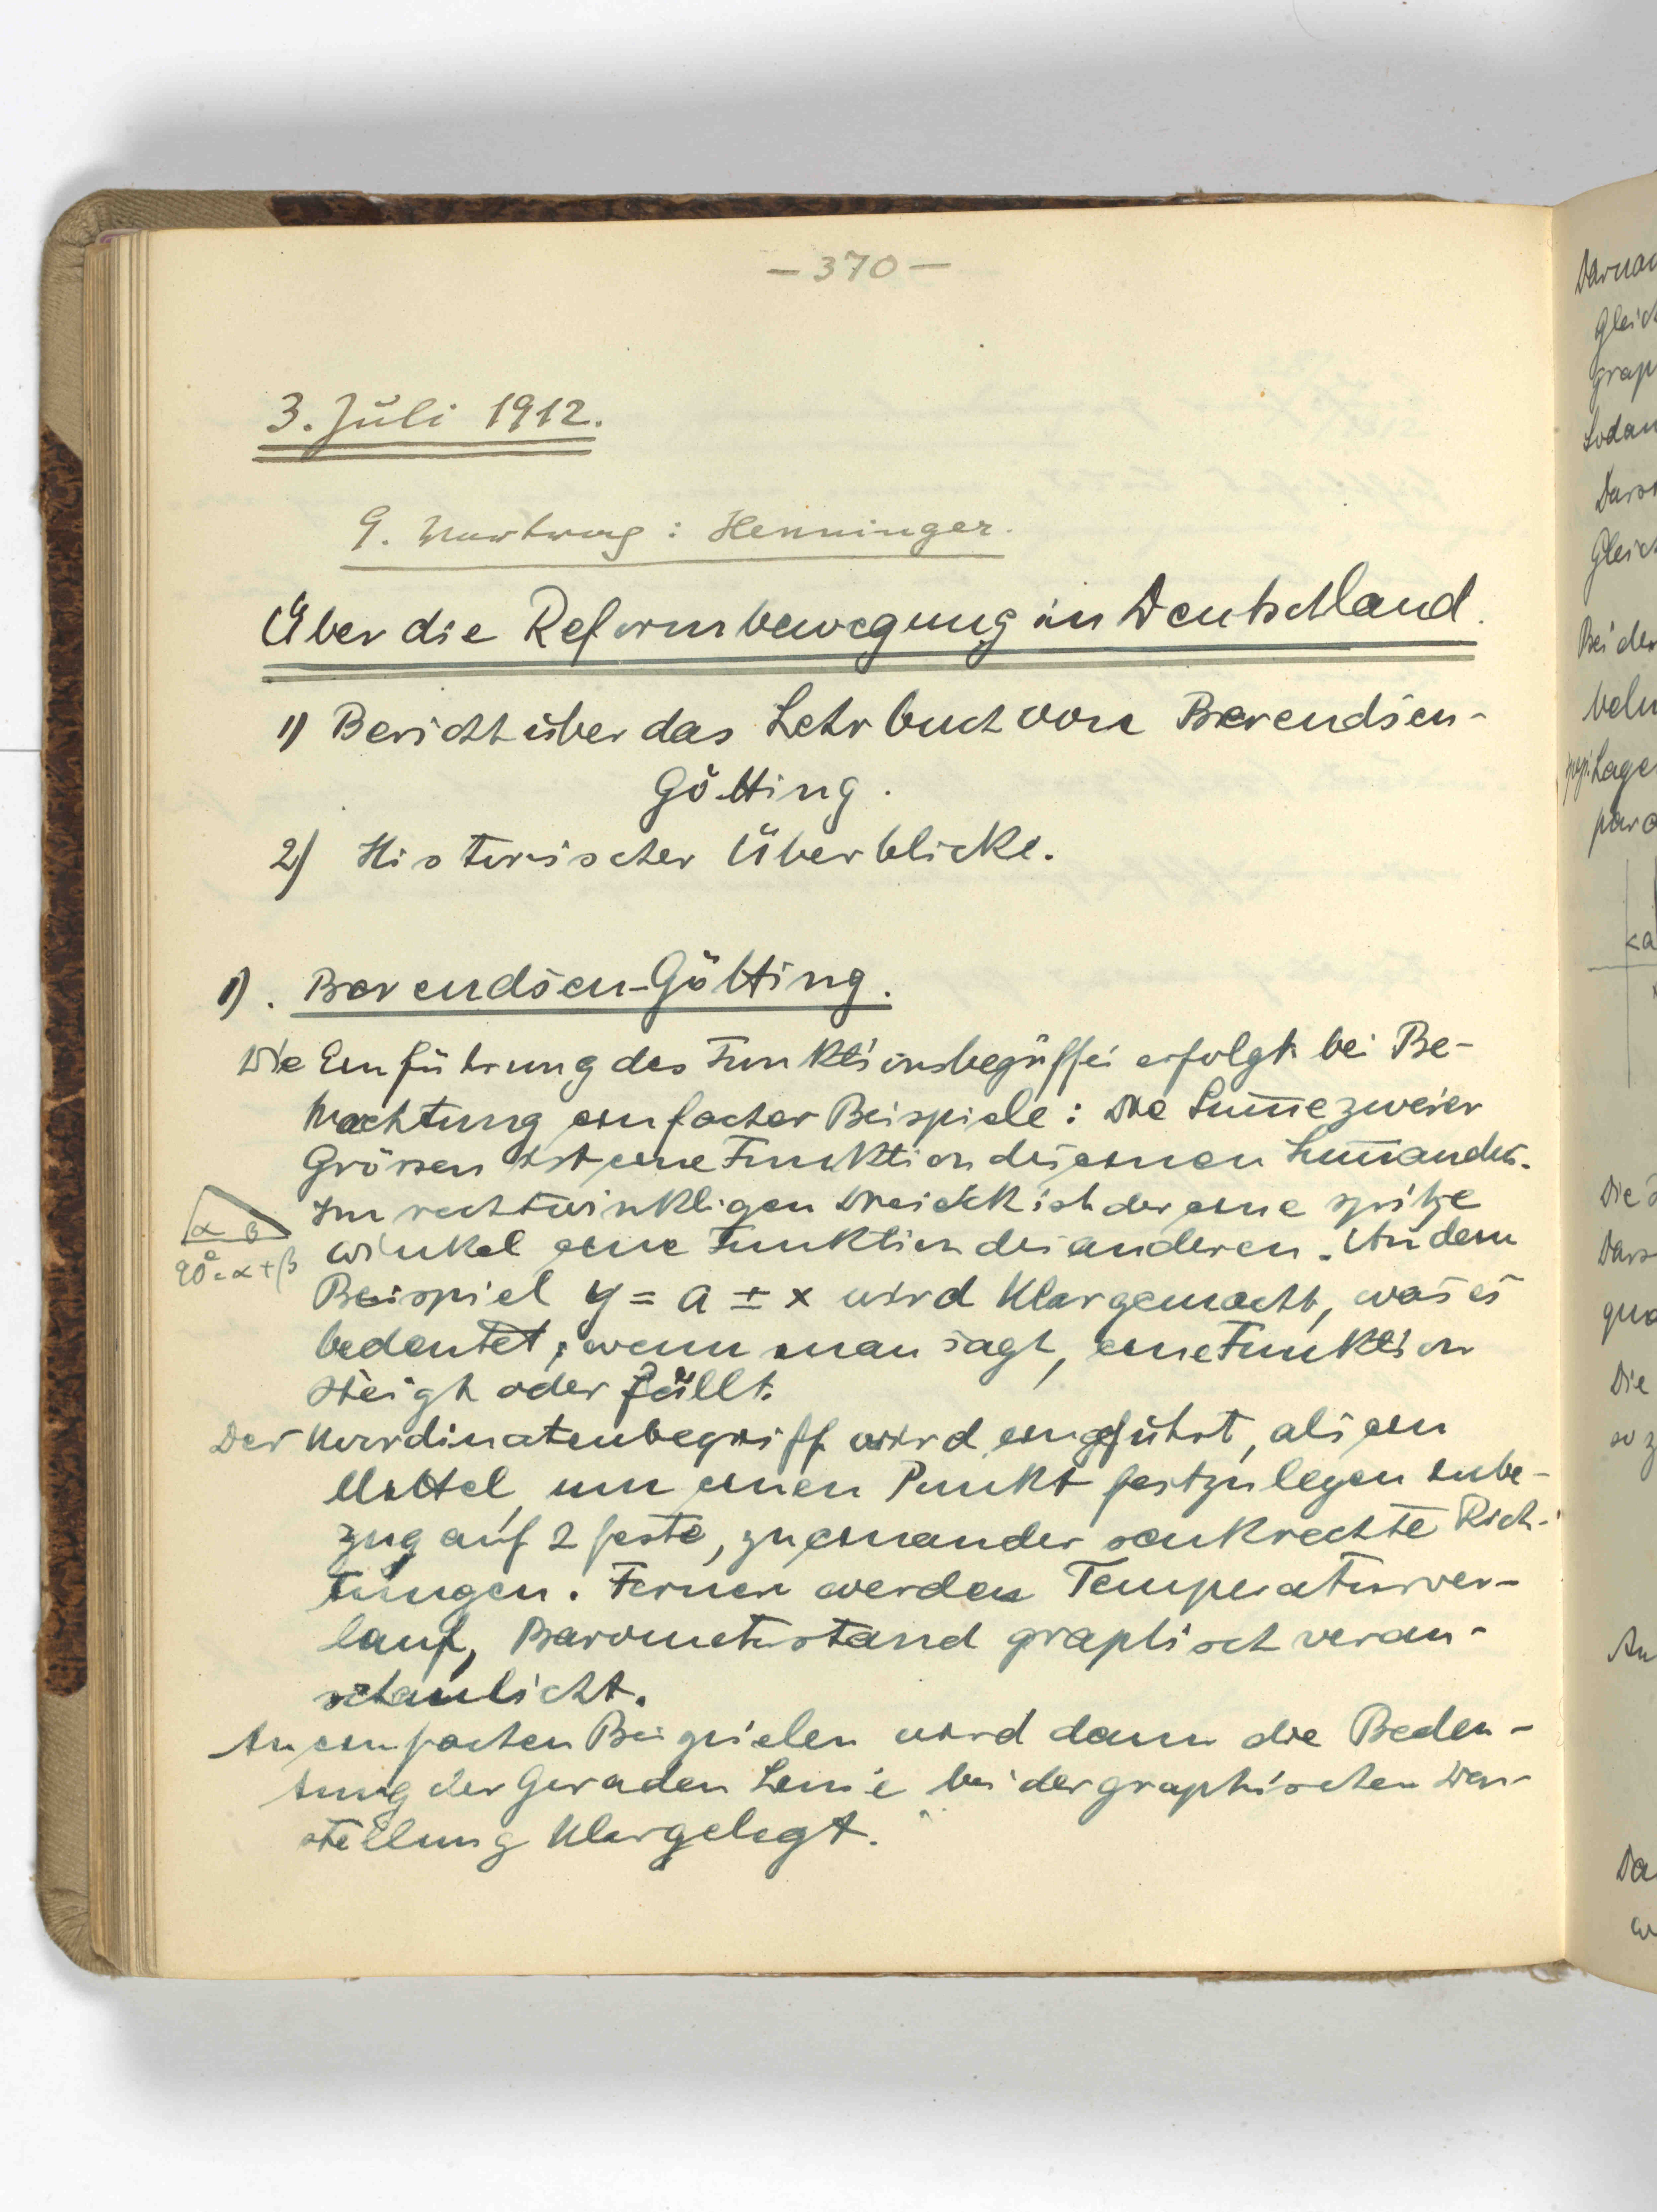 — 370 —
3. Juli 1912.
9. Vortrag: Henninger.
Über die Reformbewegung in Deutschland.
1) Bericht über das Lehrbuch von Berendsen-
Götting.
2) Historischer Überblick.
1). Berendsen-Götting.
Die Einführung des Funktionsbegriffes erfolgt bei Be-
trachtung einfacher Beispiele: Die Sum̄e zweier
Grössen ist eine Funktion des einen Sum̄anden.
Im rechtwinkligen Dreieck ist der eine spitze
Winkel eine Funktion des anderen. An dem
Beispiel y = a ± x wird klar gemacht, was es
bedeutet, wenn man sagt, eine Funktion
steigt oder fällt.
α β
90° = α + β
Der Koordinatenbegriff wird eingeführt, als ein
Mittel, um einen Punkt festzulegen inbe-
zug auf 2 feste, zueinander senkrechte Rich-
tungen. Ferner werden Temperaturver-
lauf, Barometerstand graphisch veran-
schaulicht.
An einfachen Beispielen wird dann die Bedeu-
tung der Geraden Linie bei der graphischen Dar-
stellung klargelegt.
Gleich
Sodan
Bei der
Lage
Die